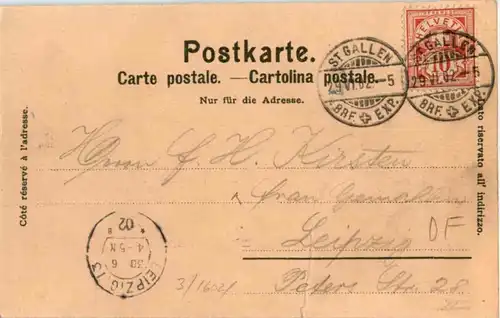 Postkarte.
Carte postale. — Cartolina postale.
Nur für die Adresse.
Côté réservé à l'adresse.
Lato riservato all' indirizzo.
HELVETIA
10
ST. GALLEN
29. VI. 02. - 5
BRF. EXP.
ST. GALLEN
29. VI. 02. - 5
BRF. EXP.
Herrn F. H. Kirsten
Leipzig
Peters Str. 28
DF
LEIPZIG 13
30 6
4-5 N
* 02